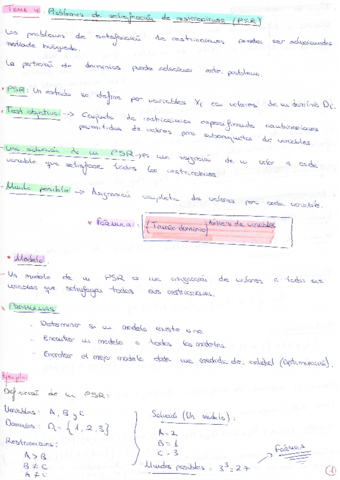 TEMA 4: Problemas de satisfacción de restricciones (PSR)
Los problemas de satisfacción de restricciones pueden ser solucionados
mediante búsqueda.
La partición de dominios puede solucionar estos problemas.
• PSR: Un estado se define por variables Xi con valores de un dominio Di.
• Test objetivo: -> Conjunto de restricciones especificando combinaciones
permitidas de valores para subconjuntos de variables.
• Una solución de un PSR es una asignación de un valor a cada
variable que satisface todas las restricciones.
• Mundo posible -> Asignación completa de valores por cada variable.
• Fórmula: (Tamaño dominio) número de variables
• Modelo
Un modelo de un PSR es una asignación de valores a todas sus
variables que satisfagan todas sus restricciones.
• Problemas
- Determinar si un modelo existe o no
- Encontrar un modelo o todos los modelos
- Encontrar el mejor modelo dada una medida de calidad (Optimización).
Ejemplo:
Definición de un PSR:
Variables: A, B y C
Dominios: Di = {1, 2, 3}
Restricciones:
A > B
B ≠ C
A ≠ C
Solución (Un modelo):
A = 2
B = 1
C = 3
Mundos posibles: 3³ = 27
Fórmula
1